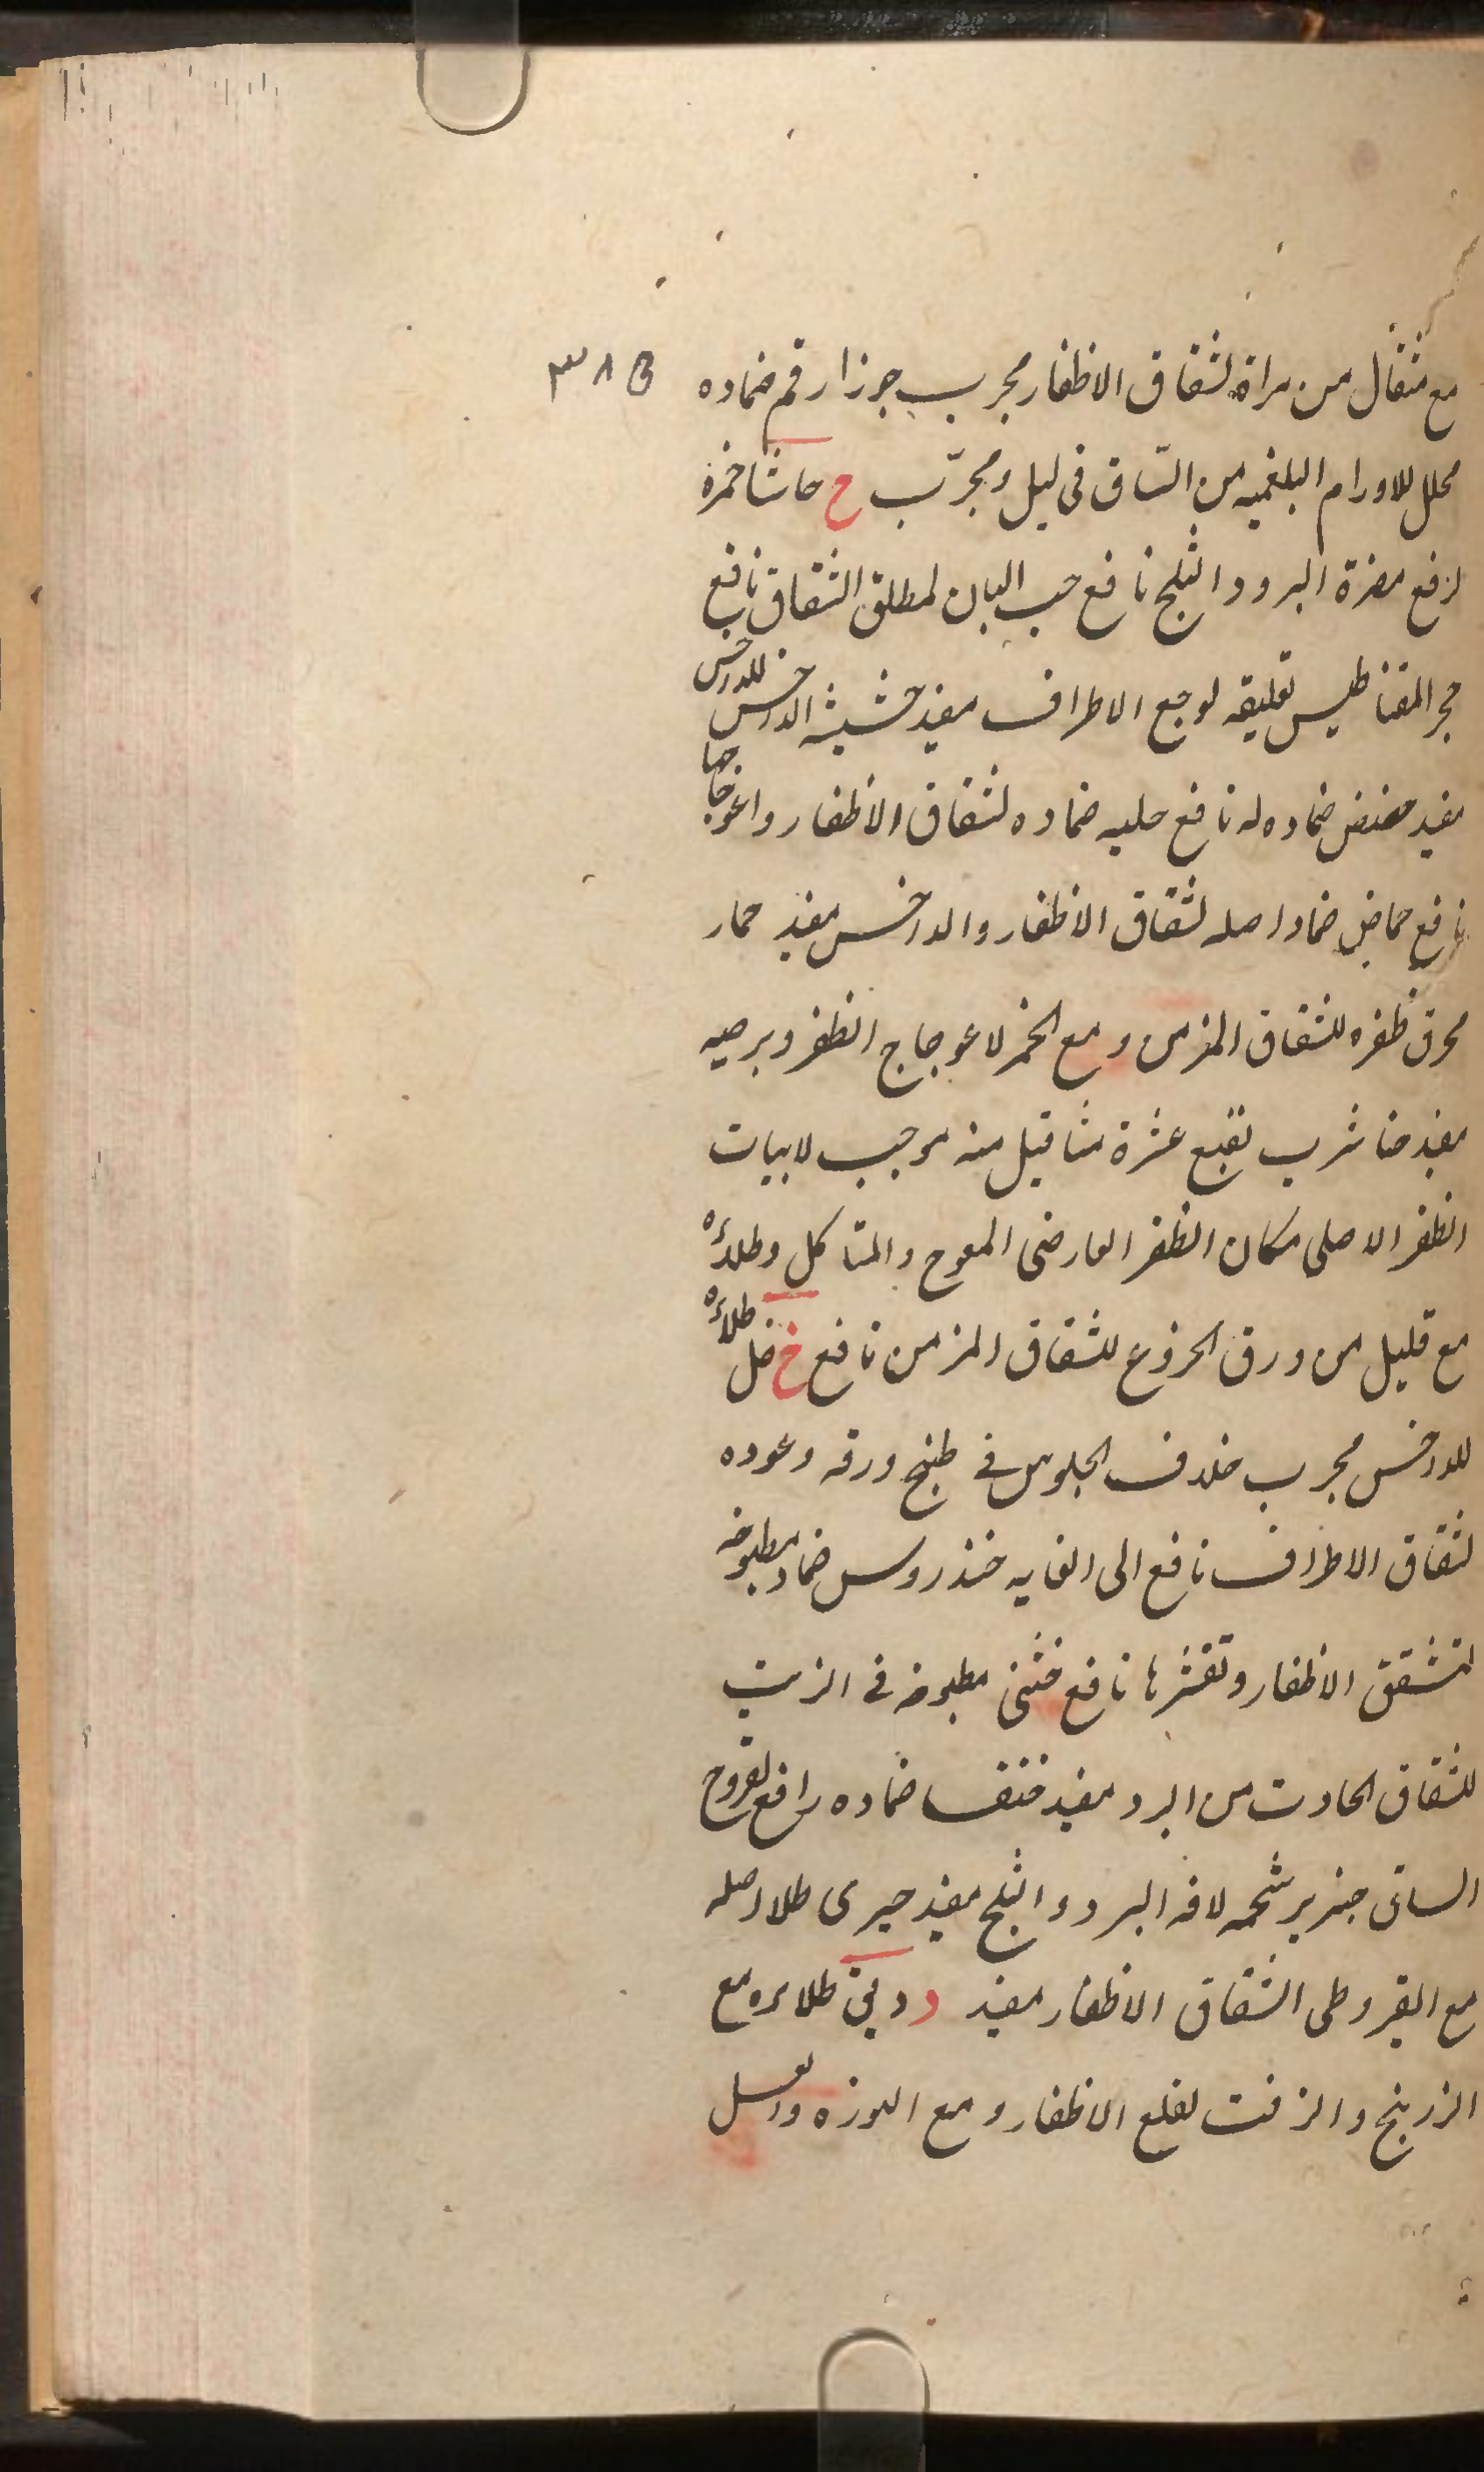 مع مثقال من مرارة لشقاق الاظفار مجرب جرزارقم ضماده ٣٨٥
محلل للاورام البلغميه من الساق فى ليل ومجرّب ح حاشا خمره
لرفع مضرة البرد والثلج نافع حب البان لمطلق الشقاق نافع
حجر المقناطيس تعليقه لوجع الاطراف مفيد حشيشة الداحس للداحس
مفيد حضض ضماده له نافع حلبه ضماده لشقاق الاظفار واعوجاجها
نافع حماض ضماد اصله لشقاق الاظفار والداحس مفيد حمار
محرق ظفره للشقاق المزمن و مع الخمر لاعوجاج الظفر وبرصيه
مفيد حنا شرب نقيع عشرة مثاقيل منه موجب لابيات
الظفر الاصلى مكان الظفر العارضى المعوج والمتاكل وطلاؤه
مع قليل من ورق الخروع للشقاق المزمن نافع خ خل طلاؤه
للداحس مجرب خلاف الجلوس فى طبخ ورقه وعوده
لشقاق الاطراف نافع الى الغايه خندروس ضماد مطبوخه
لتشقق الاظفار وتقشرها نافع خنثى مطبوخه فى الزيت
للشقاق الحادث من البرد مفيد خنفسا ضماده رافع لقروح
الساق خنزير شحمه لافه البرد والثلج مفيد خيرى طلا اصله
مع القيروطى الشقاق الاظفار مفيد د دبق طلاءه مع
الزرنيخ والزفت لقلع الاظفار و مع النوره والعسل